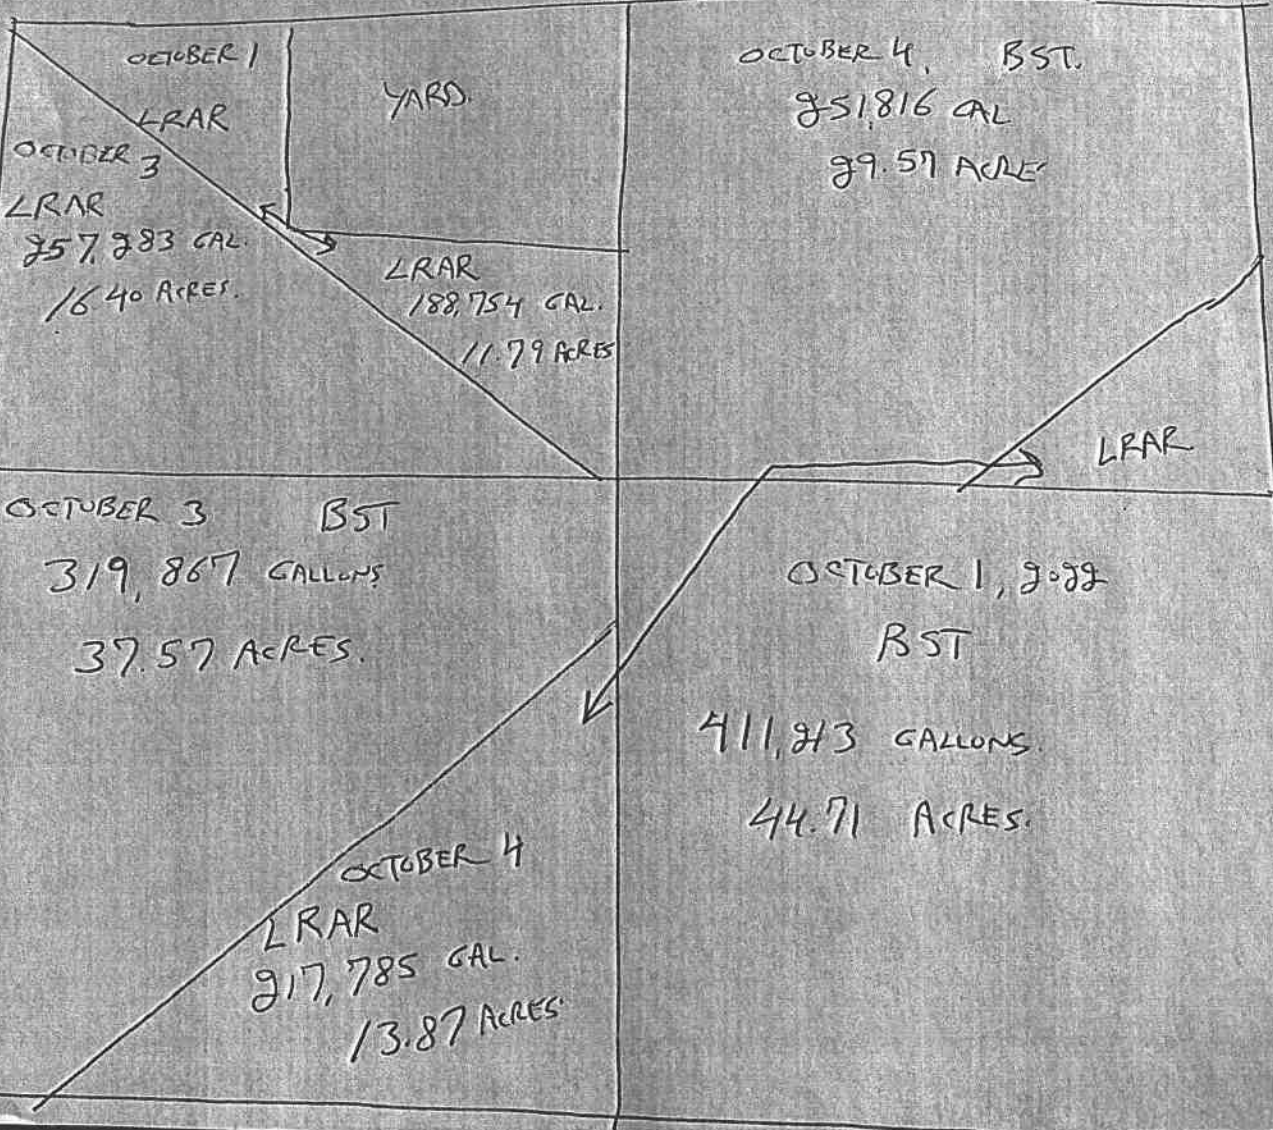 OCTOBER 1
LRAR
YARD.
OCTOBER 3
LRAR
257,283 GAL.
16.40 ACRES.
LRAR
188,754 GAL.
11.79 ACRES
OCTOBER 4, BST.
251,816 GAL
29.57 ACRE
LRAR
OCTOBER 3 BST
319,867 GALLONS
37.57 ACRES.
OCTOBER 4
LRAR
217,785 GAL.
13.87 ACRES
OCTOBER 1, 2022
BST
GALLONS.
44.71 ACRES.